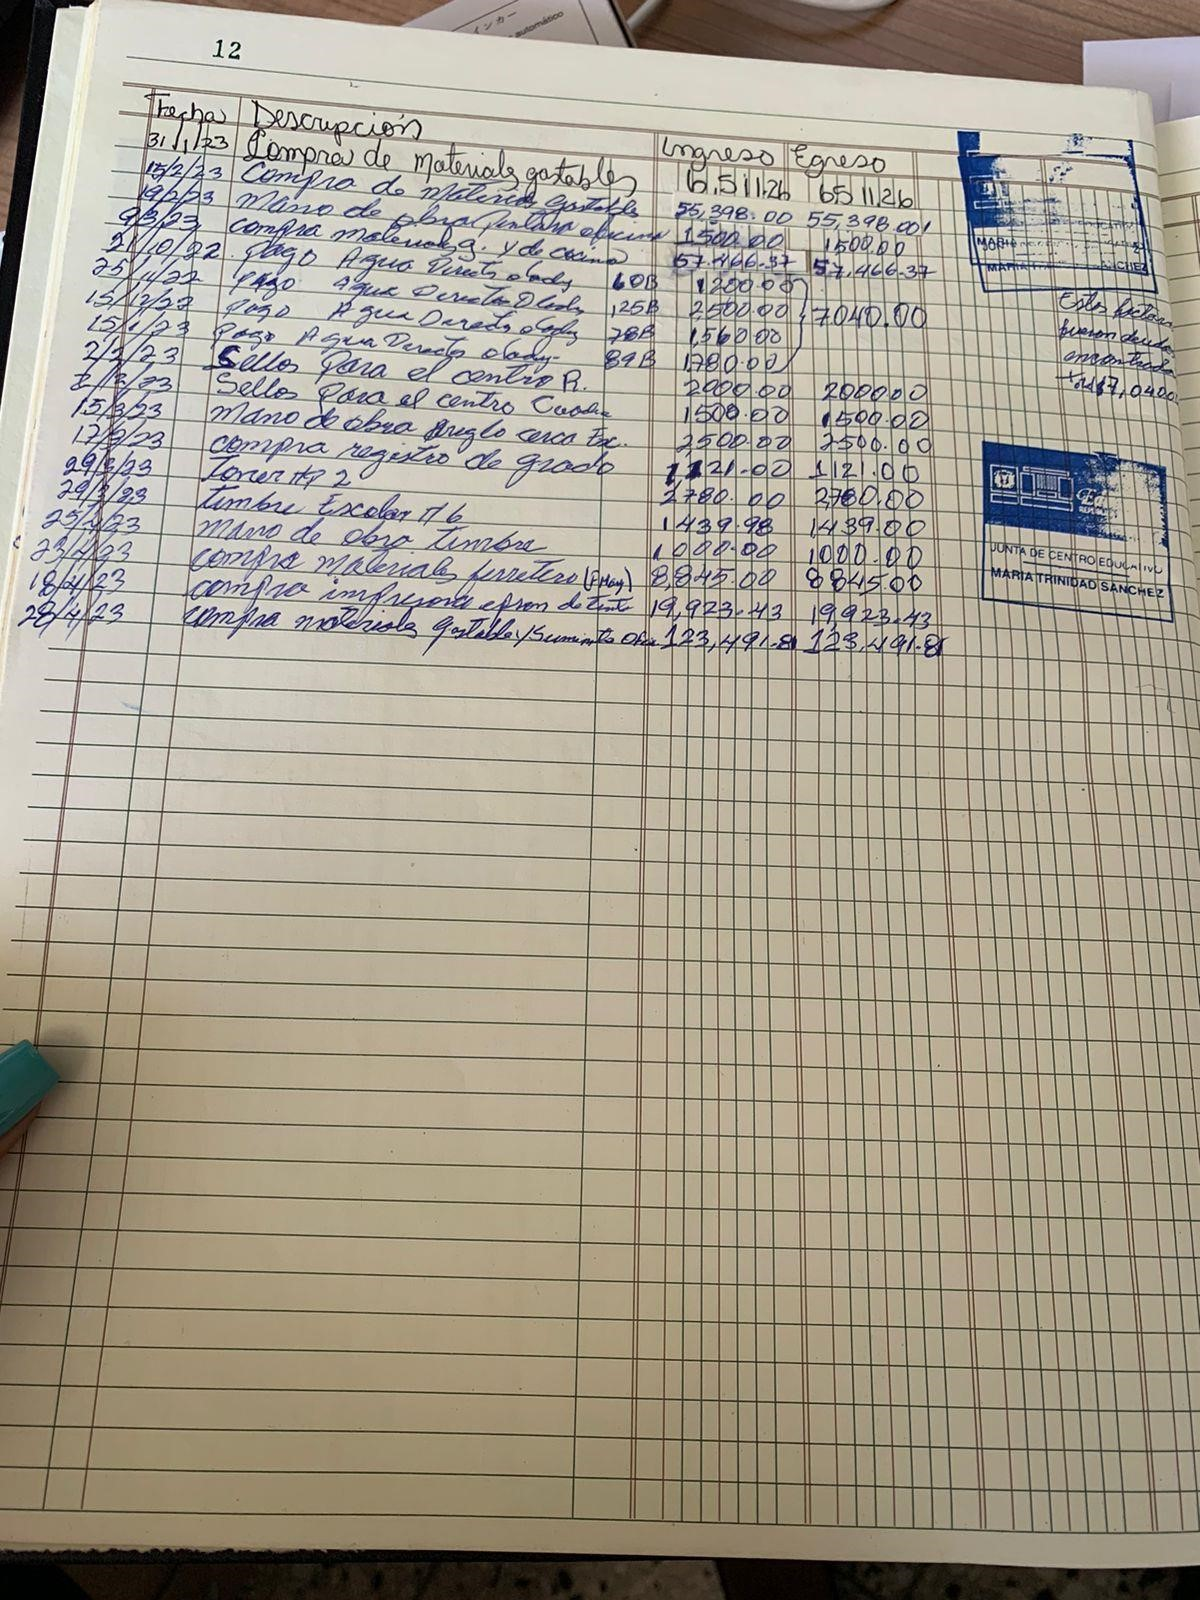 インカー
automático
12
Fecha Descripción Ingreso Egreso
31/1/23 Compra de materiales gastables 6,511.26 6511.26
15/2/23 Compra de Materias gastable 55,398.00 55,398.00
19/2/23 mano de obra pintura oficina 1500.00 1500.00
9/3/23 compra materiales g. y de cocina 57.466.37 57,466.37
21/10/22 pago Agua Directo 60B 1200.00
25/ /22 pago Agua Directo 125B 2500.00 7040.00
15/12/22 pago Agua Directo 78B 1,560.00
15/1/23 pago Agua Directo 89B 1,780.00
2/2/23 Sellos Para el centro R. 2000.00 2000.00
/23 Sellos Para el centro 1500.00 1500.00
15/3/23 mano de obra Areglo cerca 2500.00 2500.00
17/ /23 compra registro de grado 1121.00 1121.00
29/3/23 Toner HP 2 2780.00 2780.00
29/3/23 timbre Escolar 1439.98 1439.00
25/4/23 mano de obra timbre 1000.00 1000.00
23/4/23 compra materiales ferretero 8,845.00 8845.00
18/4/23 compra impresora epson de tinta 19,923.43 19,923.43
28/4/23 compra materiales gastable y 123,491.81 123,491.81
MARIA SANCHEZ
Estas factura
fueron deuda
encontrada
JUNTA DE CENTRO EDUCATIVO
MARIA TRINIDAD SANCHEZ